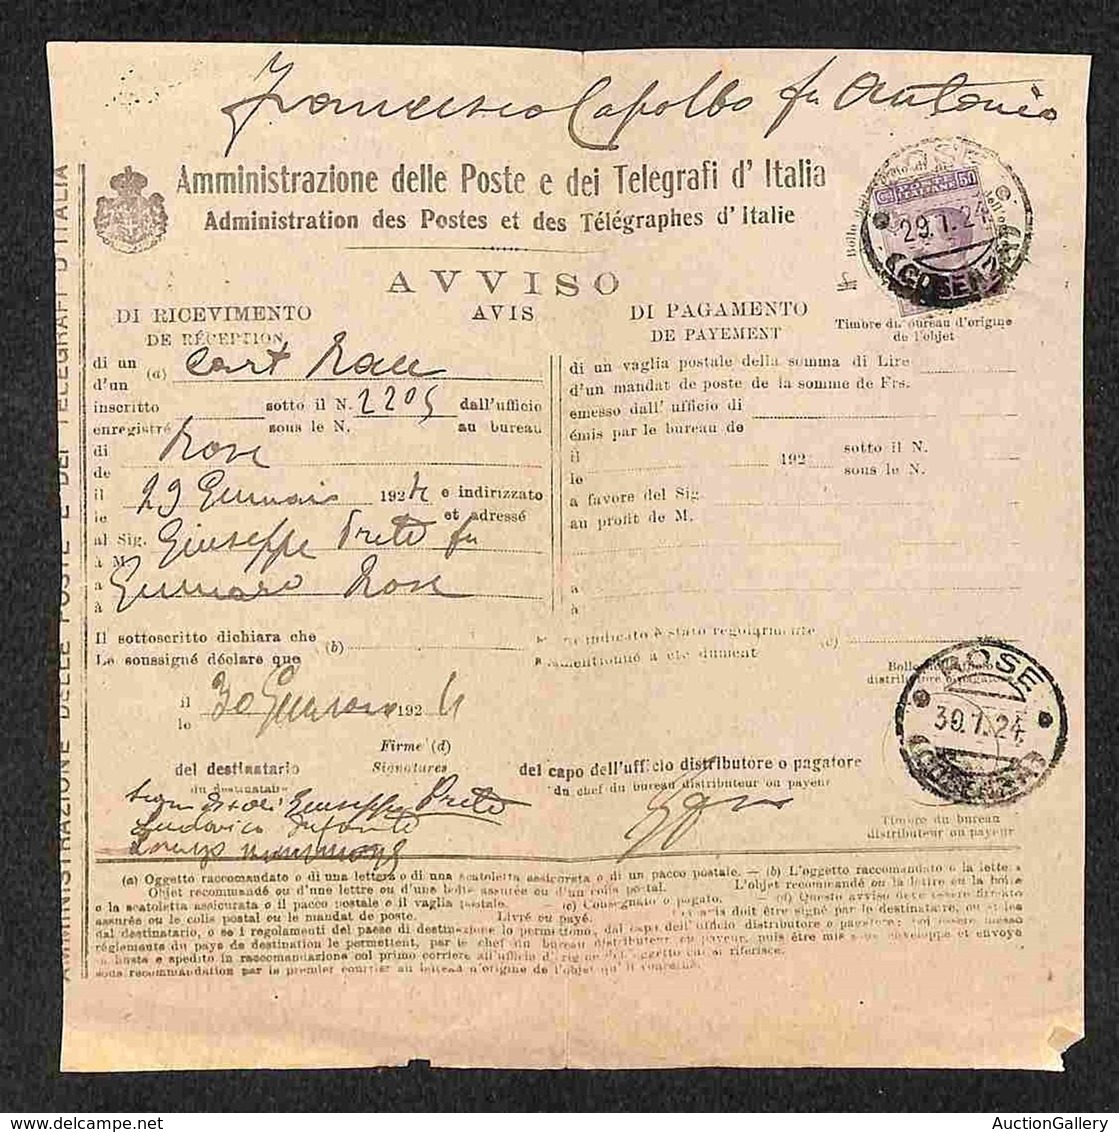 Francesco Capolbo fu Antonio
Amministrazione delle Poste e dei Telegrafi d' Italia
Administration des Postes et des Télégraphes d' Italie
50
29.1.24
(COSENZA)
AVVISO
DI RICEVIMENTO AVIS DI PAGAMENTO
DE RÉCEPTION DE PAYEMENT
Timbre du bureau d'origine
de l'objet
di un (a) Cart Racc
d'un
inscritto sotto il N. 2205 dall'ufficio
enregistré sous le N. au bureau
di Rose
de
il 29 Gennaio 1924 e indirizzato
le et adressé
al Sig. Giuseppe Preto fu
à M.
a Gennaro Rose
à
di un vaglia postale della somma di Lire
d'un mandat de poste de la somme de Frs.
emesso dall' ufficio di
émis par le bureau de
il 192 sotto il N.
le sous le N.
a favore del Sig.
au profit de M.
a
à
Il sottoscritto dichiara che (b) indicato è stato regolarmente (c)
Le soussigné déclare que mentionné a été dument
il 30 Gennaio 1924
le
Bollo dell'ufficio
distributore o pagatore
ROSE
30.1.24
(COSENZA)
Firme (d)
del destinatario Signatures del capo dell'ufficio distributore o pagatore
du destinataire du chef du bureau distributeur ou payeur
Giuseppe Preto
Ludovico Infante
Timbre du bureau
distributeur ou payeur
(a) Oggetto raccomandato o di una lettera o di una scatoletta assicurata o di un pacco postale. — (b) L'oggetto raccomandato o la lettera
Objet recommandé ou d'une lettre ou d'une boîte assurée ou d'un colis postal. L'objet recommandé ou la lettre ou la boîte
o la scatoletta assicurata o il pacco postale o il vaglia postale. — (c) Consegnato o pagato. — (d) Questo avviso deve essere firmato
assurée ou le colis postal ou le mandat de poste. Livré ou payé. Cet avis doit être signé par le destinataire, ou si les
dal destinatario, o se i regolamenti del paese di destinazione lo permettono, dal capo dell' ufficio distributore o pagatore
réglements du pays de destination le permettent, par le chef du bureau distributeur ou payeur, puis être mis sous enveloppe et envoyé
in busta e spedito in raccomandazione col primo corriere all'ufficio d'origine dell'oggetto cui si riferisce.
sous recommandation par le premier courrier au bureau d'origine de l'objet qu'il concerne.
AMMINISTRAZIONE DELLE POSTE E DEI TELEGRAFI D'ITALIA
AuctionGallery